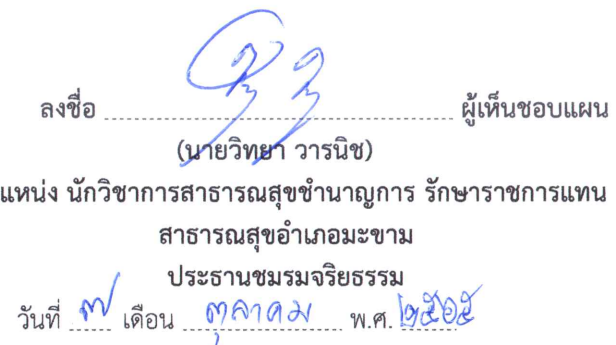 ลงชื่อ ........................................ ผู้เห็นชอบแผน
(นายวิทยา วารนิช)
แหน่ง นักวิชาการสาธารณสุขชำนาญการ รักษาราชการแทน
สาธารณสุขอำเภอมะขาม
ประธานชมรมจริยธรรม
วันที่ ๗ เดือน ตุลาคม พ.ศ. ๒๕๖๕